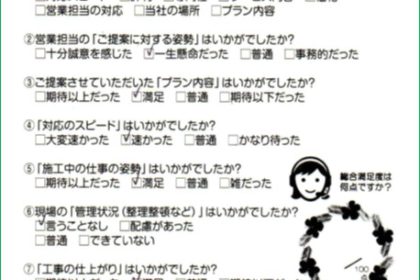 □営業担当の対応 □当社の場所 □プラン内容
②営業担当の「ご提案に対する姿勢」はいかがでしたか?
□十分誠意を感じた ☑一生懸命だった □普通 □事務的だった
③ご提案させていただいた「プラン内容」はいかがでしたか?
□期待以上だった ☑満足 □普通 □期待以下だった
④「対応のスピード」はいかがでしたか?
□大変速かった ☑速かった □普通 □かなり待った
⑤「施工中の仕事の姿勢」はいかがでしたか?
□期待以上だった ☑満足 □普通 □雑だった
総合満足度は
何点ですか?
⑥現場の「管理状況(整理整頓など)」はいかがでしたか?
☑言うことなし □配慮があった
□普通 □できていない
/100
⑦「工事の仕上がり」はいかがでしたか?